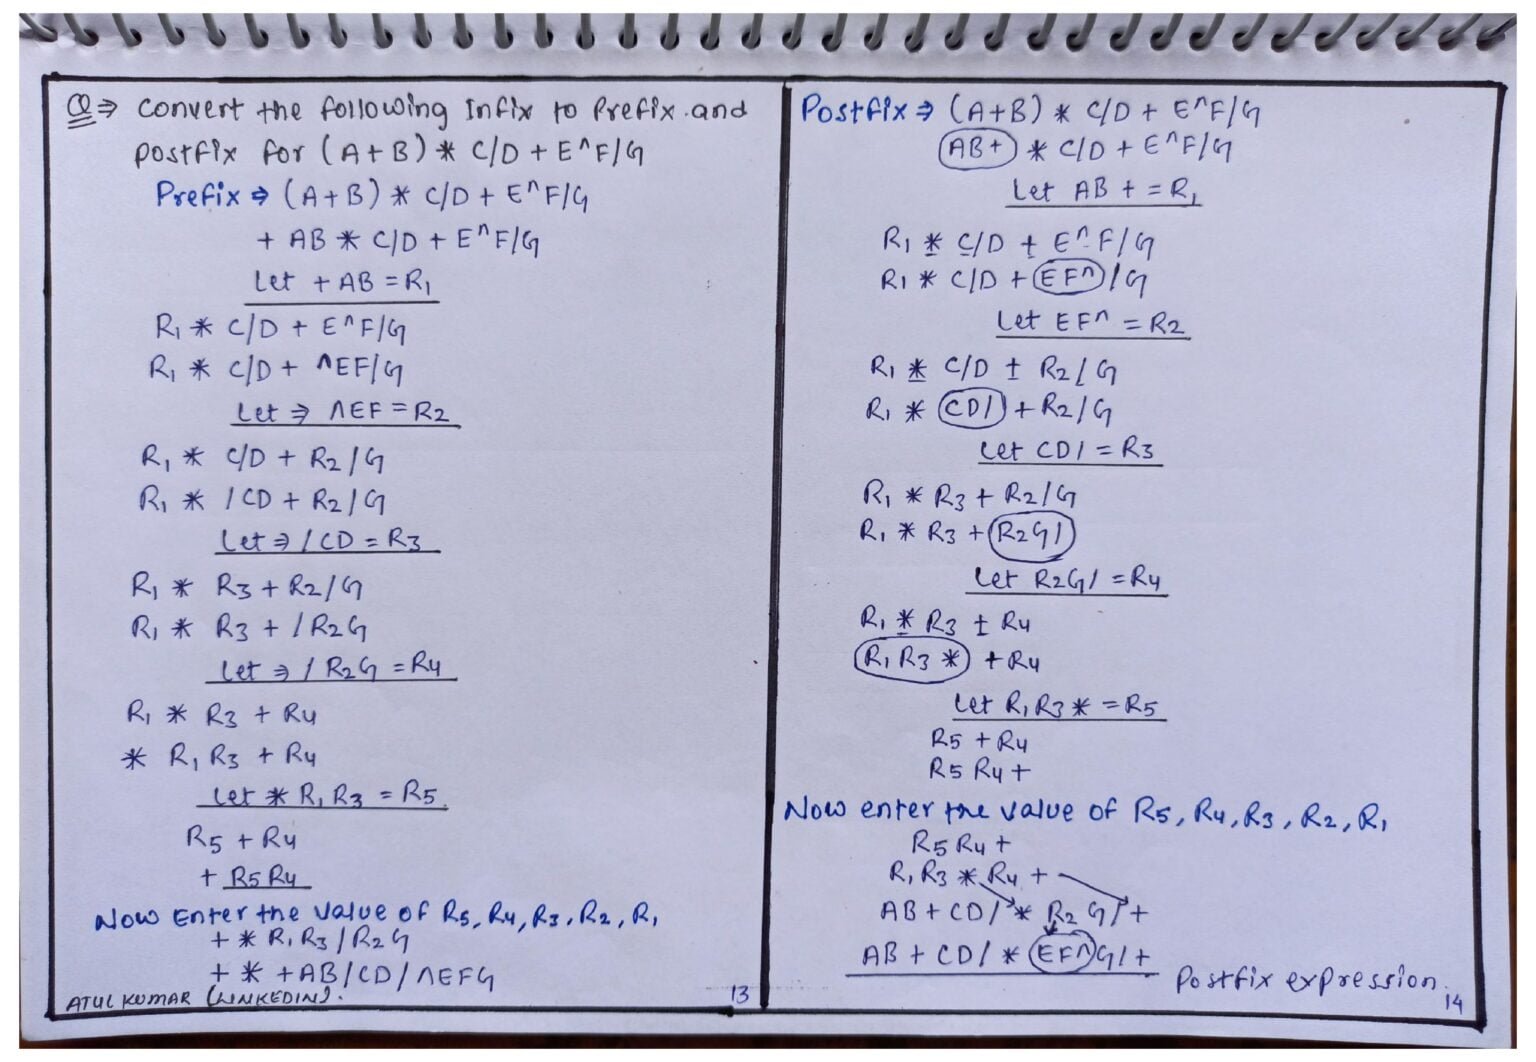 Q⇒ Convert the following Infix to Prefix and
postfix for (A+B) * C/D + E^F/G
Prefix ⇒ (A+B) * C/D + E^F/G
+ AB * C/D + E^F/G
Let + AB = R1
R1 * C/D + E^F/G
R1 * C/D + ^EF/G
Let ⇒ ^EF = R2
R1 * C/D + R2/G
R1 * /CD + R2/G
Let ⇒ /CD = R3
R1 * R3 + R2/G
R1 * R3 + /R2G
Let ⇒ /R2G = R4
R1 * R3 + R4
* R1 R3 + R4
Let * R1 R3 = R5
R5 + R4
+ R5 R4
Now Enter the value of R5, R4, R3, R2, R1
+ * R1 R3 / R2 G
+ * +AB/CD/^EFG
ATUL KUMAR (LINKEDIN).
13
Postfix ⇒ (A+B) * C/D + E^F/G
AB+ * C/D + E^F/G
Let AB + = R1
R1 * C/D + E^F/G
R1 * C/D + EF^ /G
Let EF^ = R2
R1 * C/D + R2/G
R1 * CD/ + R2/G
Let CD/ = R3
R1 * R3 + R2/G
R1 * R3 + R2G/
Let R2G/ = R4
R1 * R3 + R4
R1 R3 * + R4
Let R1 R3 * = R5
R5 + R4
R5 R4 +
Now enter the value of R5, R4, R3, R2, R1
R5 R4 +
R1 R3 * R4 +
AB + CD/ * R2 G/+
AB + CD/ * EF^G/+
Postfix expression.
14